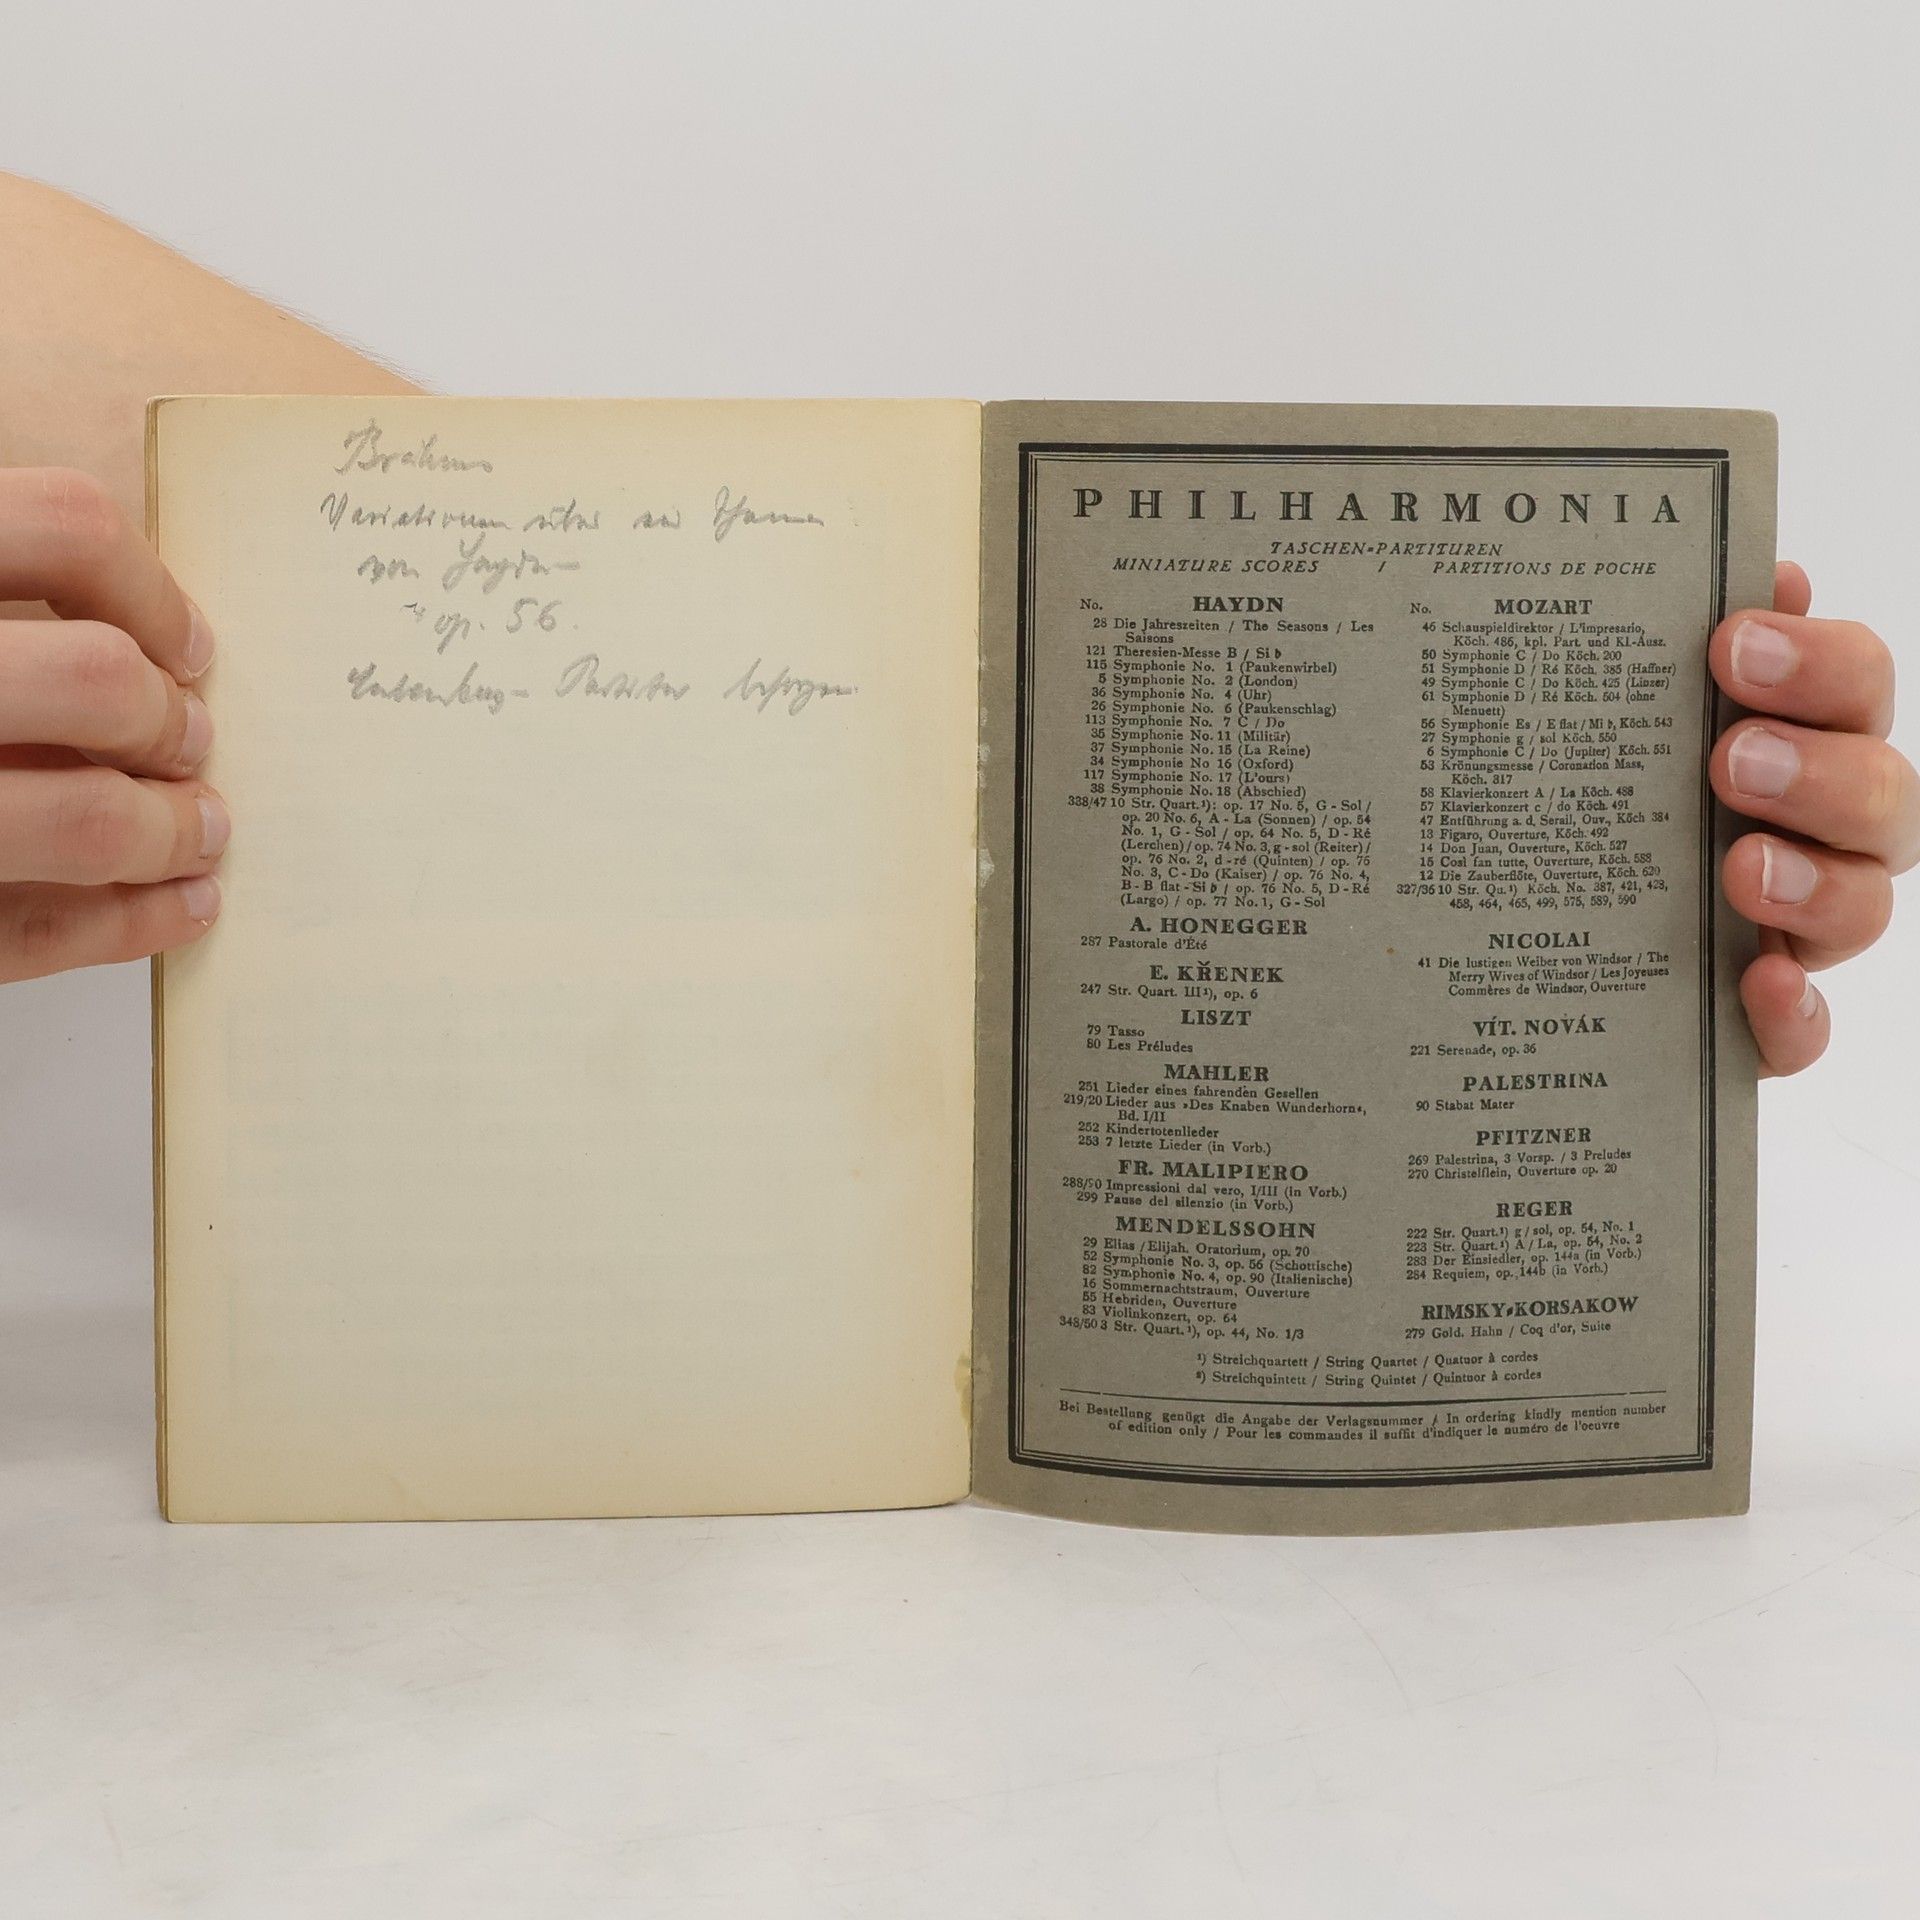 Brahms
Variationen über ein Thema
von Haydn
op. 56.
Eulenburg- Partitur besorgen.
PHILHARMONIA
TASCHEN-PARTITUREN
MINIATURE SCORES / PARTITIONS DE POCHE
No. HAYDN
28 Die Jahreszeiten / The Seasons / Les
Saisons
121 Theresien-Messe B / Si ♭
115 Symphonie No. 1 (Paukenwirbel)
5 Symphonie No. 2 (London)
36 Symphonie No. 4 (Uhr)
26 Symphonie No. 6 (Paukenschlag)
113 Symphonie No. 7 C / Do
35 Symphonie No. 11 (Militär)
37 Symphonie No. 15 (La Reine)
34 Symphonie No 16 (Oxford)
117 Symphonie No. 17 (L'ours)
38 Symphonie No. 18 (Abschied)
338/47 10 Str. Quart.¹): op. 17 No. 5, G - Sol /
op. 20 No. 6, A - La (Sonnen) / op. 54
No. 1, G - Sol / op. 64 No. 5, D - Ré
(Lerchen) / op. 74 No. 3, g - sol (Reiter) /
op. 76 No. 2, d - ré (Quinten) / op. 76
No. 3, C - Do (Kaiser) / op. 76 No. 4,
B - B flat - Si ♭ / op. 76 No. 5, D - Ré
(Largo) / op. 77 No. 1, G - Sol
A. HONEGGER
287 Pastorale d'Été
E. KŘENEK
247 Str. Quart. III¹), op. 6
LISZT
79 Tasso
80 Les Préludes
MAHLER
251 Lieder eines fahrenden Gesellen
219/20 Lieder aus »Des Knaben Wunderhorn«,
Bd. I/II
252 Kindertotenlieder
253 7 letzte Lieder (in Vorb.)
FR. MALIPIERO
288/90 Impressioni dal vero, I/III (in Vorb.)
299 Pause del silenzio (in Vorb.)
MENDELSSOHN
29 Elias / Elijah. Oratorium, op. 70
52 Symphonie No. 3, op. 56 (Schottische)
82 Symphonie No. 4, op. 90 (Italienische)
16 Sommernachtstraum, Ouverture
55 Hebriden, Ouverture
83 Violinkonzert, op. 64
348/50 3 Str. Quart.¹), op. 44, No. 1/3
No. MOZART
46 Schauspieldirektor / L'impresario,
Köch. 486, kpl. Part. und Kl.-Ausz.
50 Symphonie C / Do Köch. 200
51 Symphonie D / Ré Köch. 385 (Haffner)
49 Symphonie C / Do Köch. 425 (Linzer)
61 Symphonie D / Ré Köch. 504 (ohne
Menuett)
56 Symphonie Es / E flat / Mi ♭, Köch. 543
27 Symphonie g / sol Köch. 550
6 Symphonie C / Do (Jupiter) Köch. 551
53 Krönungsmesse / Coronation Mass,
Köch. 317
58 Klavierkonzert A / La Köch. 488
57 Klavierkonzert c / do Köch. 491
47 Entführung a. d. Serail, Ouv., Köch 384
13 Figaro, Ouverture, Köch. 492
14 Don Juan, Ouverture, Köch. 527
15 Così fan tutte, Ouverture, Köch. 588
12 Die Zauberflöte, Ouverture, Köch. 620
327/36 10 Str. Qu.¹) Köch. No. 387, 421, 428,
458, 464, 465, 499, 575, 589, 590
NICOLAI
41 Die lustigen Weiber von Windsor / The
Merry Wives of Windsor / Les Joyeuses
Commères de Windsor, Ouverture
VÍT. NOVÁK
221 Serenade, op. 36
PALESTRINA
90 Stabat Mater
PFITZNER
269 Palestrina, 3 Vorsp. / 3 Preludes
270 Christelflein, Ouverture op. 20
REGER
222 Str. Quart.¹) g / sol, op. 54, No. 1
223 Str. Quart.¹) A / La, op. 54, No. 2
283 Der Einsiedler, op. 144a (in Vorb.)
284 Requiem, op. 144b (in Vorb.)
RIMSKY-KORSAKOW
279 Gold. Hahn / Coq d'or, Suite
¹) Streichquartett / String Quartet / Quatuor à cordes
²) Streichquintett / String Quintet / Quintuor à cordes
Bei Bestellung genügt die Angabe der Verlagsnummer / In ordering kindly mention number
of edition only / Pour les commandes il suffit d'indiquer le numéro de l'oeuvre